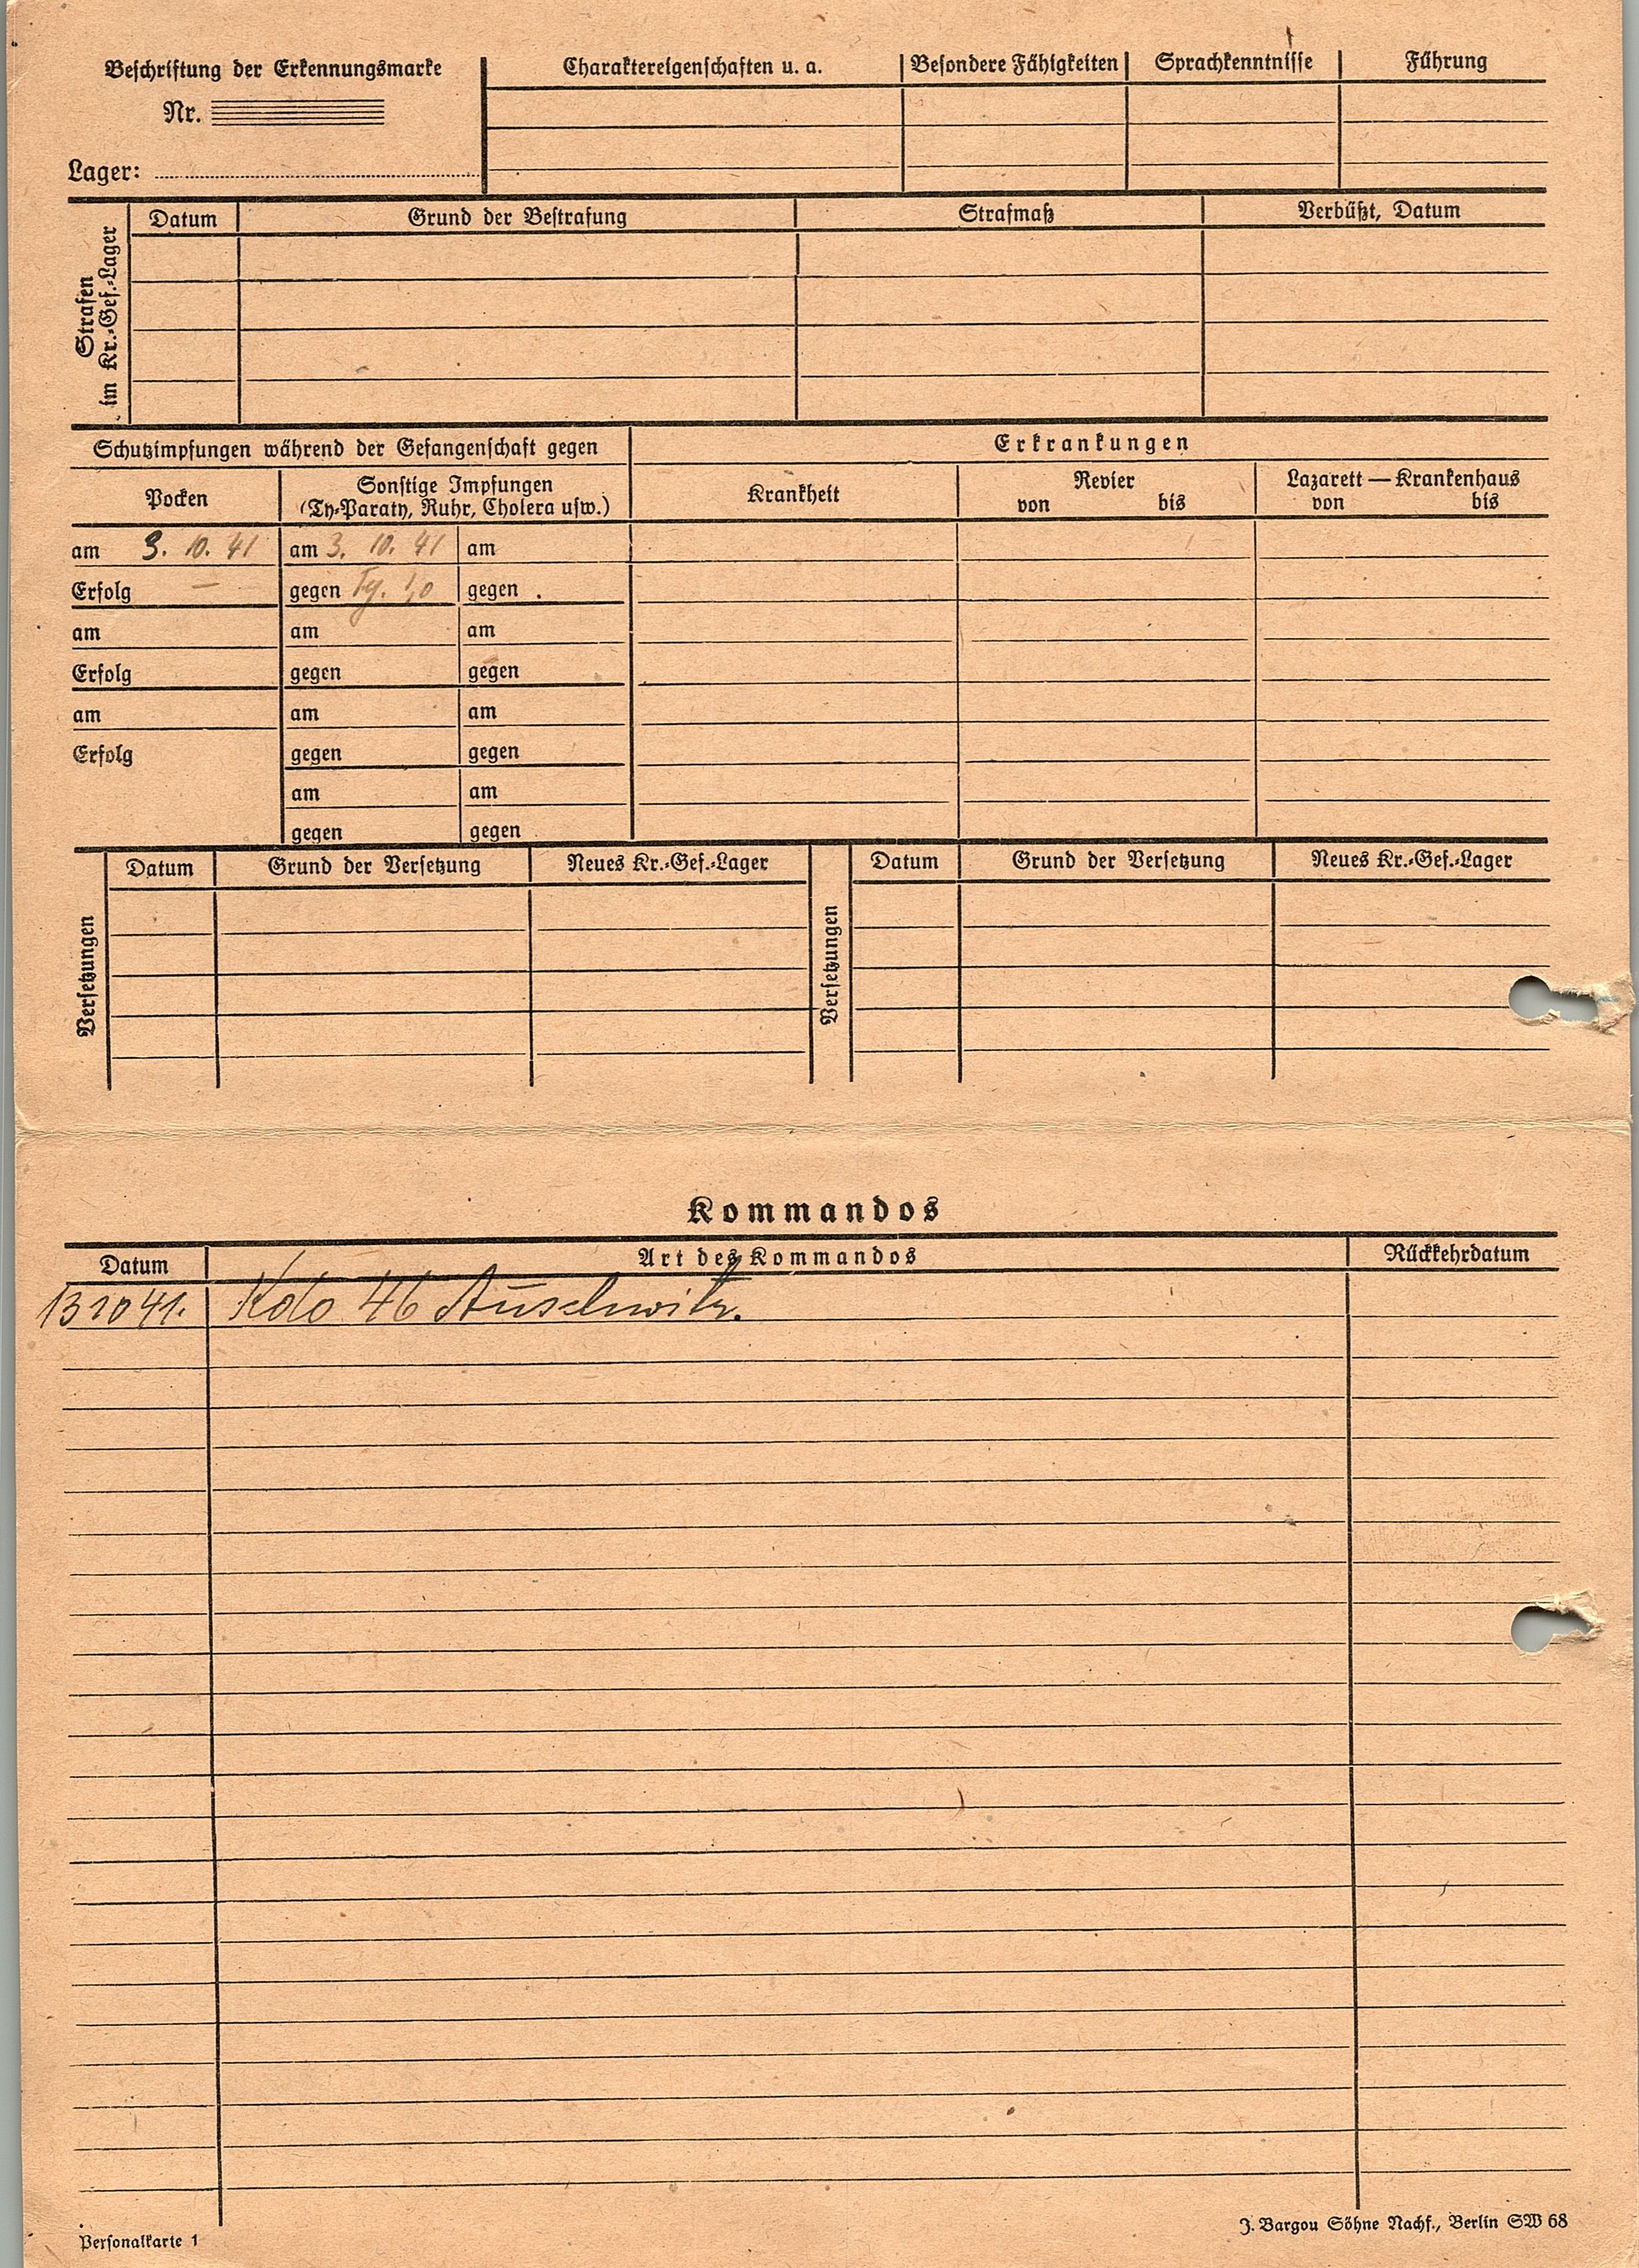 Beschriftung der Erkennungsmarke
Nr.
Lager:
Charaktereigenschaften u. a.
Besondere Fähigkeiten
Sprachkenntnisse
Führung
Strafen
im Kr.-Gef.-Lager
Datum
Grund der Bestrafung
Strafmaß
Verbüßt, Datum
Schutzimpfungen während der Gefangenschaft gegen
Erkrankungen
Pocken
Sonstige Impfungen
(Ty-Paraty, Ruhr, Cholera usw.)
Krankheit
Revier
von bis
Lazarett — Krankenhaus
von bis
am 3. 10. 41 am 3. 10. 41 am
Erfolg — gegen Ty. gegen
am am am
Erfolg gegen gegen
am am am
Erfolg gegen gegen
am am
gegen gegen
Versetzungen
Datum
Grund der Versetzung
Neues Kr.-Gef.-Lager
Versetzungen
Datum
Grund der Versetzung
Neues Kr.-Gef.-Lager
Kommandos
Datum
Art des Kommandos
Rückkehrdatum
13 10 41. Kdo 46 Auschwitz.
Personalkarte 1
J. Bargou Söhne Nachf., Berlin SW 68